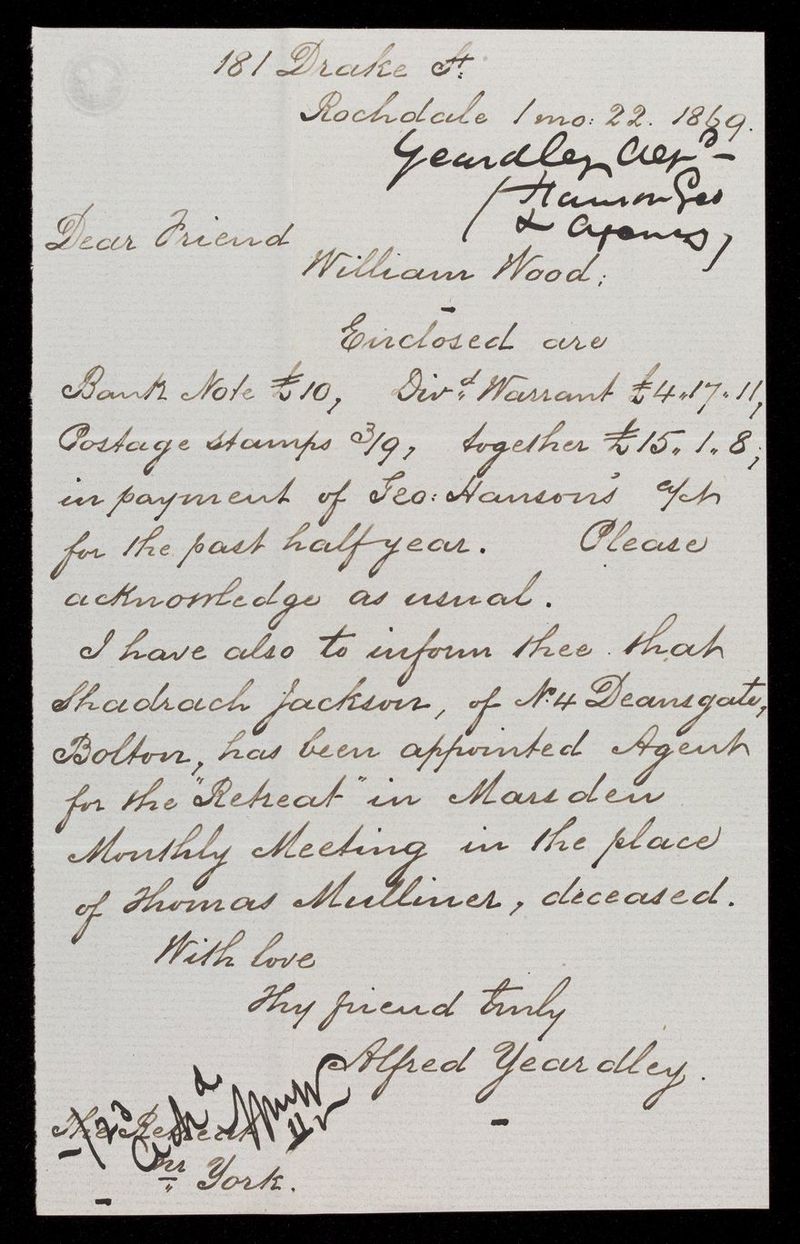 181 Drake St.
Rochdale 1 mo: 22. 1869.
Yeardley Alfd
(Hanson Geo
& Agents)
Dear Friend
William Wood;
Enclosed are
Bank Note £10, Divd. Warrant £4..17..11,
Postage stamps 3/9, together £15..1..8;
in payment of Geo: Hanson's a/ct
for the past half year. Please
acknowledge as usual.
I have also to inform thee that
Shadrach Jackson, of No. 4 Deansgate,
Bolton, has been appointed Agent
for the "Retreat" in Marsden
Monthly Meeting in the place
of Thomas Mulliner, deceased.
With love
Thy friend truly
Alfred Yeardley.
The Retreat
nr York.